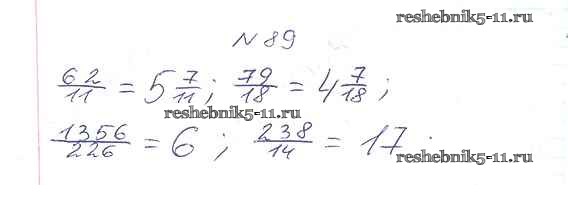 reshebnik5-11.ru
№ 89
62/11 = 5 7/11; 79/18 = 4 7/18;
reshebnik5-11.ru
1356/226 = 6; 238/14 = 17.
reshebnik5-11.ru